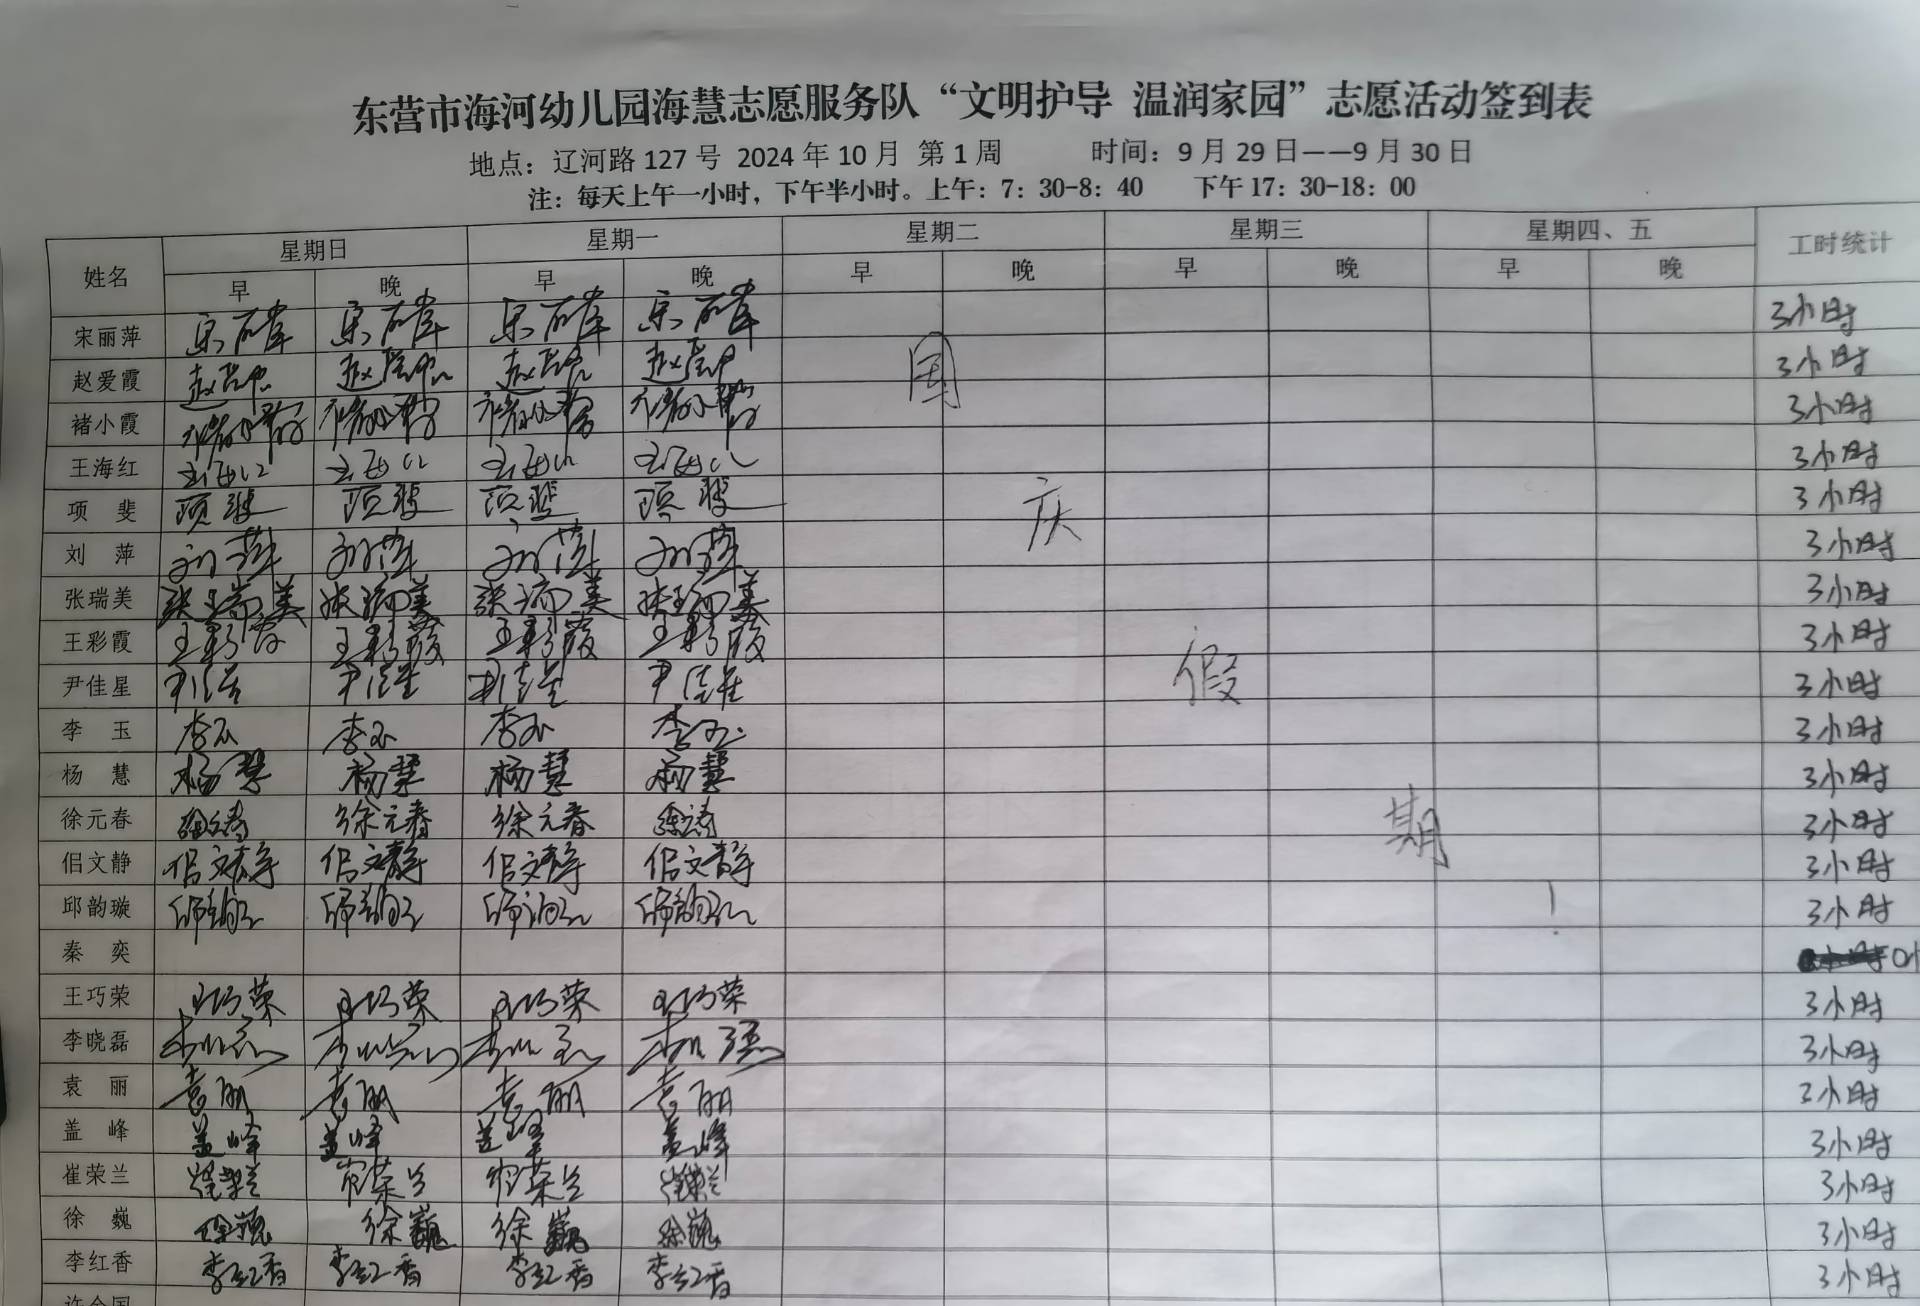 东营市海河幼儿园海慧志愿服务队“文明护导 温润家园”志愿活动签到表
地点：辽河路127号 2024年10月 第1周 时间：9月29日——9月30日
注：每天上午一小时，下午半小时。上午：7：30-8：40 下午17：30-18：00
姓名 星期日 星期一 星期二 星期三 星期四、五 工时统计
早 晚 早 晚 早 晚 早 晚 早 晚
宋丽萍 宋丽萍 宋丽萍 宋丽萍 宋丽萍 3小时
赵爱霞 赵爱霞 赵爱霞 赵爱霞 赵爱霞 国 3小时
褚小霞 褚小霞 褚小霞 褚小霞 褚小霞 3小时
王海红 王海红 王海红 王海红 王海红 3小时
项斐 项斐 项斐 项斐 项斐 庆 3小时
刘萍 刘萍 刘萍 刘萍 刘萍 3小时
张瑞美 张瑞美 张瑞美 张瑞美 张瑞美 3小时
王彩霞 王彩霞 王彩霞 王彩霞 王彩霞 3小时
尹佳星 尹佳星 尹佳星 尹佳星 尹佳星 假 3小时
李玉 李玉 李玉 李玉 李玉 3小时
杨慧 杨慧 杨慧 杨慧 杨慧 3小时
徐元春 徐元春 徐元春 徐元春 徐元春 期 3小时
佀文静 佀文静 佀文静 佀文静 佀文静 3小时
邱韵璇 邱韵璇 邱韵璇 邱韵璇 邱韵璇 ！ 3小时
秦奕 0小
王巧荣 王巧荣 王巧荣 王巧荣 王巧荣 3小时
李晓磊 李晓磊 李晓磊 李晓磊 李晓磊 3小时
袁丽 袁丽 袁丽 袁丽 袁丽 3小时
盖峰 盖峰 盖峰 盖峰 盖峰 3小时
崔荣兰 崔荣兰 崔荣兰 崔荣兰 崔荣兰 3小时
徐巍 徐巍 徐巍 徐巍 徐巍 3小时
李红香 李红香 李红香 李红香 李红香 3小时